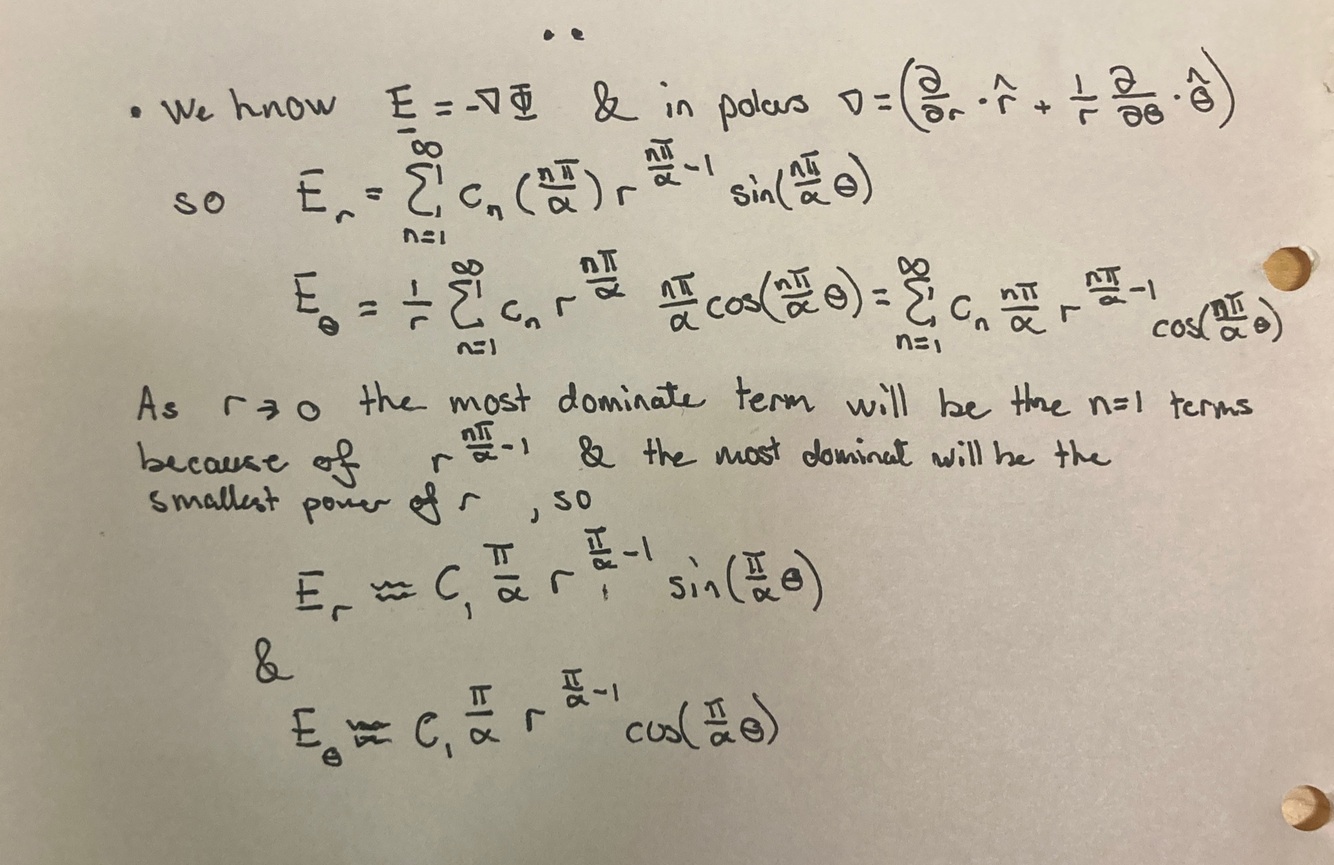 • We know E = -∇Φ & in polars ∇ = (∂/∂r · r̂ + 1/r ∂/∂θ · θ̂)
so E_r = ∑_{n=1}^{∞} c_n (nπ/α) r^{nπ/α -1} sin(nπ/α θ)
E_θ = 1/r ∑_{n=1}^{∞} c_n r^{nπ/α} nπ/α cos(nπ/α θ) = ∑_{n=1}^{∞} c_n nπ/α r^{nπ/α -1} cos(nπ/α θ)
As r → 0 the most dominate term will be the n=1 terms
because of r^{nπ/α -1} & the most dominat will be the
smallest power of r , so
E_r ≈ C_1 π/α r^{π/α -1} sin(π/α θ)
&
E_θ ≈ C_1 π/α r^{π/α -1} cos(π/α θ)